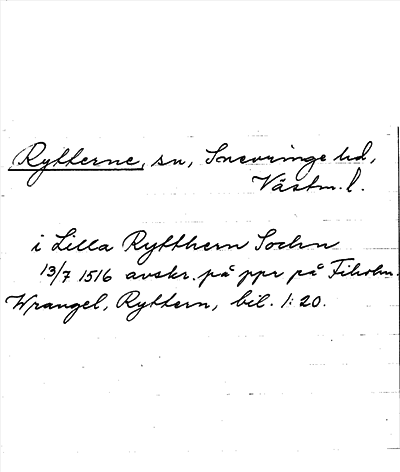 Rytterne, sn, Snevringe hd,
Västm. l.
i Lilla Rytthern Sochn
13/7 1516 avskr. på ppr på Fiholm.
Wrangel, Ryttern, bil. 1:20.